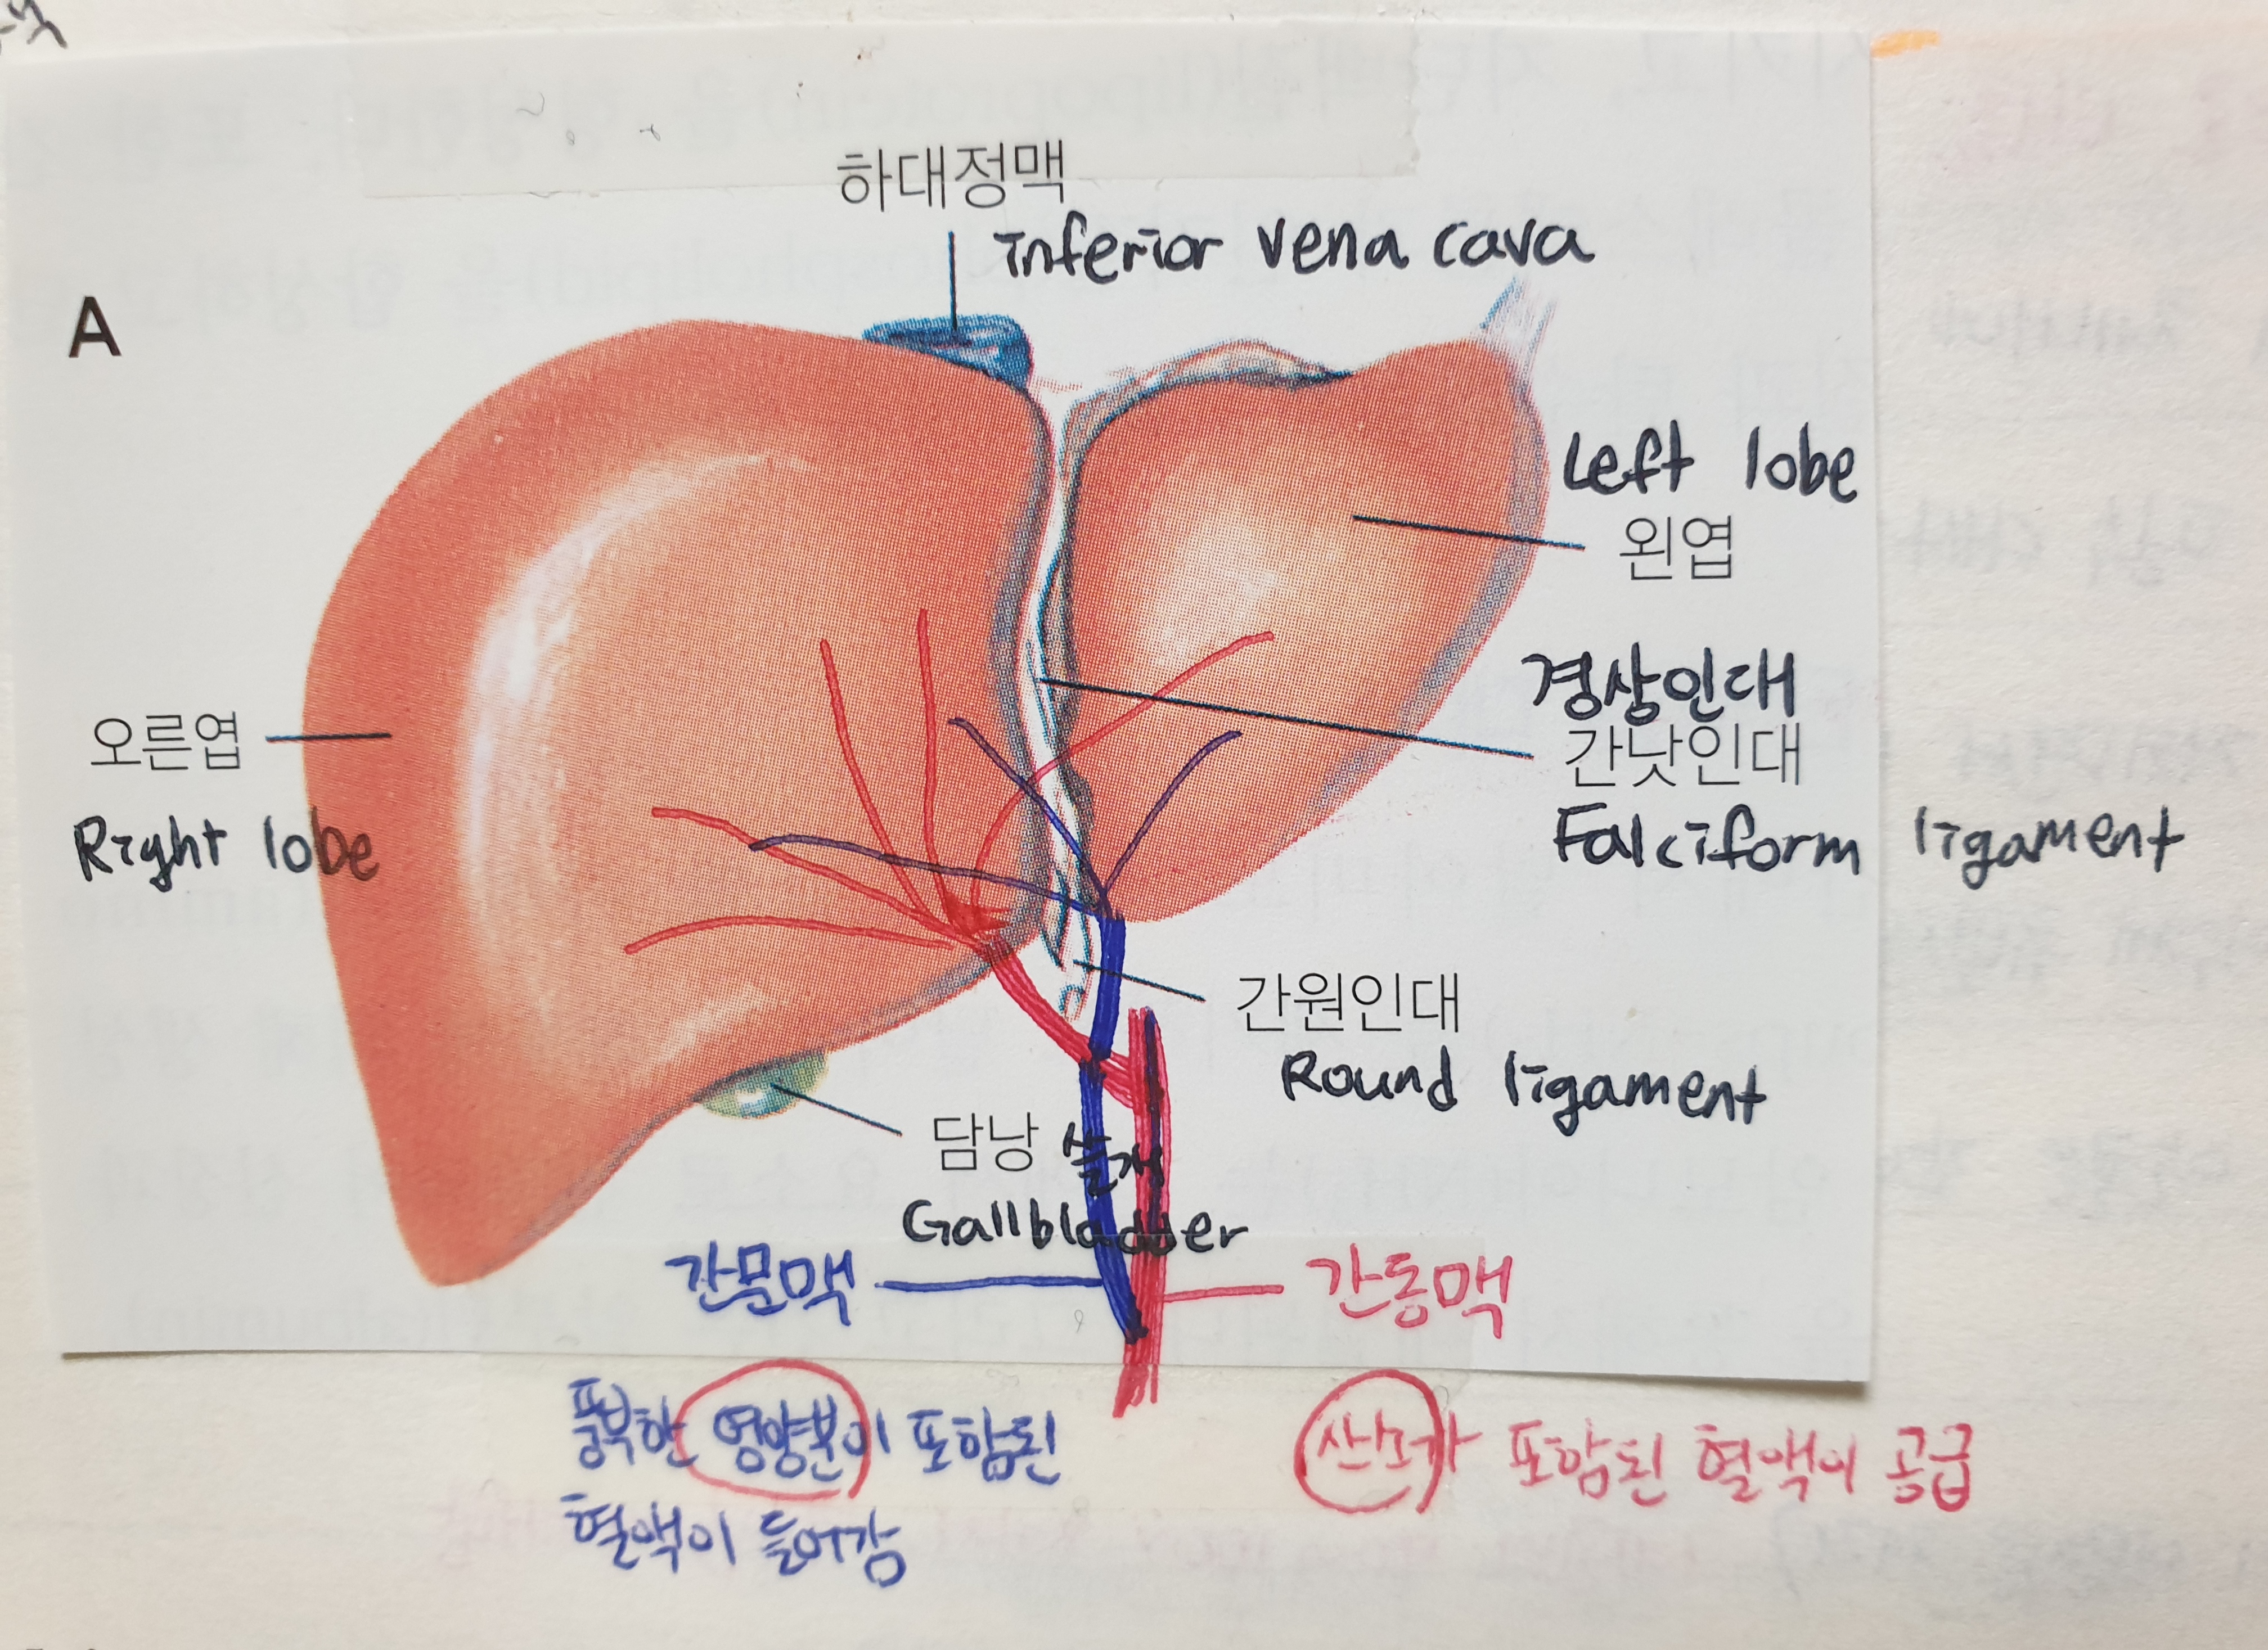 하대정맥
inferior vena cava
A
Left lobe
왼엽
경상인대
간낫인대
Falciform ligament
오른엽
Right lobe
간원인대
Round ligament
담낭 쓸개
Gallbladder
간문맥
간동맥
풍부한 영양분이 포함된
혈액이 들어감
산소가 포함된 혈액이 공급